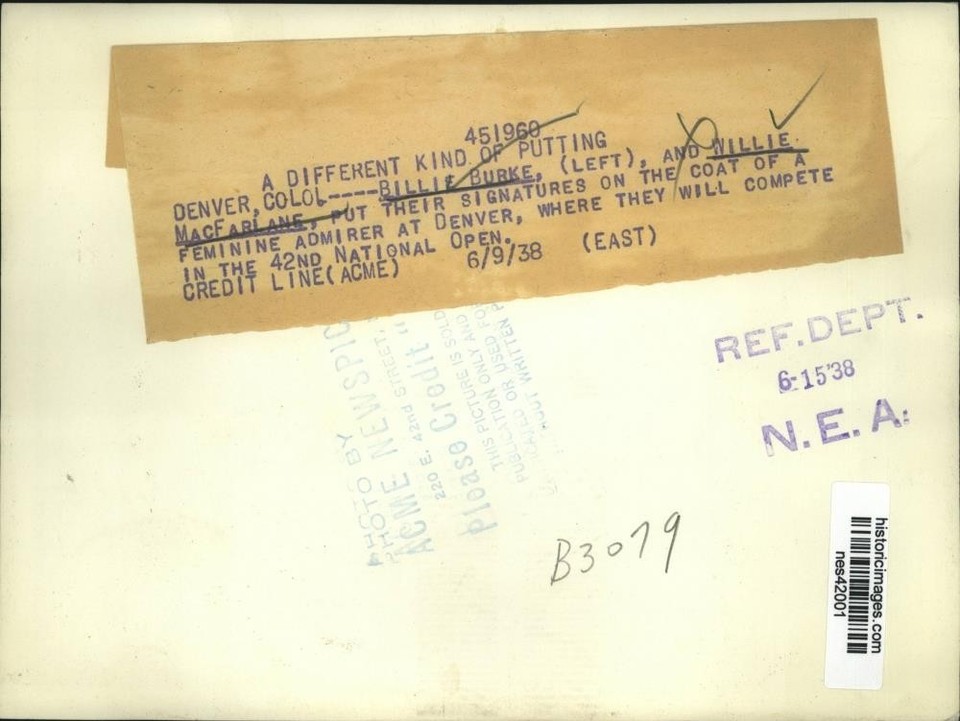 451960
A DIFFERENT KIND OF PUTTING
DENVER, COLOL----BILLIE BURKE, (LEFT), AND WILLIE
MACFARLANE, PUT THEIR SIGNATURES ON THE COAT OF A
FEMININE ADMIRER AT DENVER, WHERE THEY WILL COMPETE
IN THE 42ND NATIONAL OPEN.
CREDIT LINE(ACME) 6/9/38 (EAST)
PHOTO BY
ACME NEWSPIC
220 E. 42nd STREET,
Please Credit
THIS PICTURE IS SOLD
PUBLICATION ONLY AND
OR USED FO
OUT WRITTEN P
REF. DEPT.
6-15'38
N.E.A.
B3079
historicimages.com
nes42001